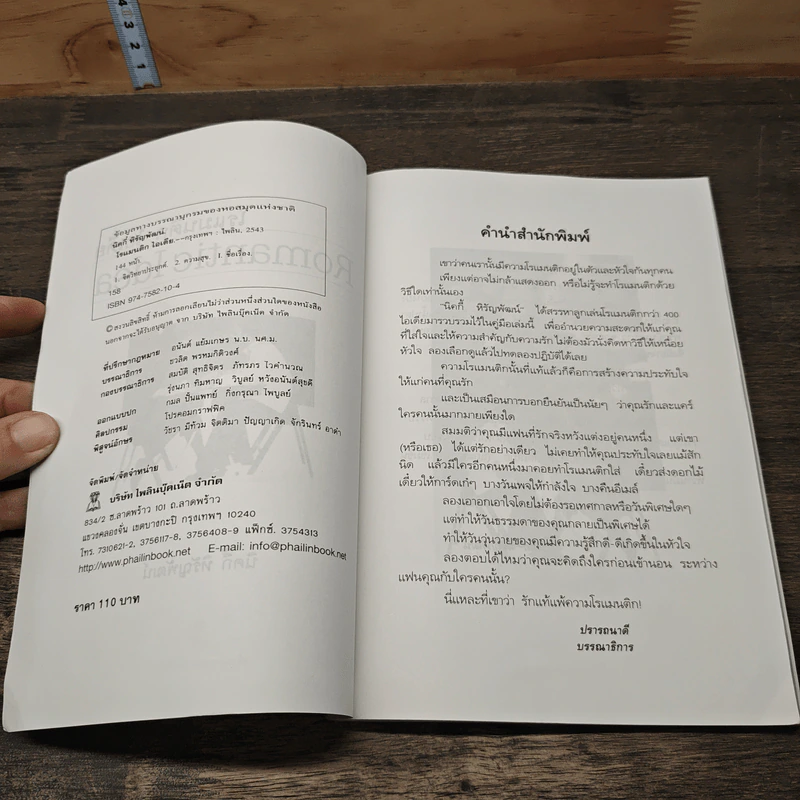 ข้อมูลทางบรรณานุกรมของหอสมุดแห่งชาติ
นิคกี้ หิรัญพัฒน์
โรแมนติก ไอเดีย.--กรุงเทพฯ : ไพลิน, 2543
144 หน้า.
1. จิตวิทยาประยุกต์. 2. ความสุข. I. ชื่อเรื่อง.
158
ISBN 974-7582-10-4
© สงวนลิขสิทธิ์ ห้ามการลอกเลียนไม่ว่าส่วนหนึ่งส่วนใดของหนังสือ
นอกจากจะได้รับอนุญาต จาก บริษัท ไพลินบุ๊คเน็ต จำกัด
ที่ปรึกษากฎหมาย อนันต์ แย้มเกษร น.บ. นศ.ม.
บรรณาธิการ ชวลิต พรหมภิติวงศ์
กองบรรณาธิการ สมบัติ สุทธิจิตร ภัทรภร ไวคำนวณ
รุ่งนภา ทิมหาญ วิบูลย์ ทวังอนันต์สุขดี
กมล ปั้นแพทย์ กิ่งกรุณา ไพบูลย์
ออกแบบปก
ศิลปกรรม โปรคอมกราฟฟิค
พิสูจน์อักษร วัชรา มีท้วม จิตติมา ปัญญาเกิด จักรินทร์ อาดำ
จัดพิมพ์/จัดจำหน่าย
บริษัท ไพลินบุ๊คเน็ต จำกัด
834/2 ซ.ลาดพร้าว 101 ถ.ลาดพร้าว
แขวงคลองจั่น เขตบางกะปิ กรุงเทพฯ 10240
โทร. 7310621-2, 3756117-8, 3756408-9 แฟ็กซ์. 3754313
http://www.phailinbook.net E-mail: info@phailinbook.net
ราคา 110 บาท
คำนำสำนักพิมพ์
เขาว่าคนเรานั้นมีความโรแมนติกอยู่ในตัวและหัวใจกันทุกคน
เพียงแต่อาจไม่กล้าแสดงออก หรือไม่รู้จะทำโรแมนติกด้วย
วิธีใดเท่านั้นเอง
"นิคกี้ หิรัญพัฒน์" ได้สรรหาลูกเล่นโรแมนติกกว่า 400
ไอเดียมารวบรวมไว้ในคู่มือเล่มนี้ เพื่ออำนวยความสะดวกให้แก่คุณ
ที่ใส่ใจและให้ความสำคัญกับความรัก ไม่ต้องมัวนั่งคิดหาวิธีให้เหนื่อย
หัวใจ ลองเลือกดูแล้วไปทดลองปฏิบัติได้เลย
ความโรแมนติกนั้นที่แท้แล้วก็คือการสร้างความประทับใจ
ให้แก่คนที่คุณรัก
และเป็นเสมือนการบอกยืนยันเป็นนัยๆ ว่าคุณรักและแคร์
ใครคนนั้นมากมายเพียงใด
สมมติว่าคุณมีแฟนที่รักจริงหวังแต่งอยู่คนหนึ่ง แต่เขา
(หรือเธอ) ได้แต่รักอย่างเดียว ไม่เคยทำให้คุณประทับใจเลยแม้สัก
นิด แล้วมีใครอีกคนหนึ่งมาคอยทำโรแมนติกใส่ เดี๋ยวส่งดอกไม้
เดี๋ยวให้การ์ดเก๋ๆ บางวันเพจให้กำลังใจ บางคืนอีเมล์
ลองเอาอกเอาใจโดยไม่ต้องรอเทศกาลหรือวันพิเศษใดๆ
แต่ทำให้วันธรรมดาของคุณกลายเป็นพิเศษได้
ทำให้วันวุ่นวายของคุณมีความรู้สึกดี-ดีเกิดขึ้นในหัวใจ
ลองตอบได้ไหมว่าคุณจะคิดถึงใครก่อนเข้านอน ระหว่าง
แฟนคุณกับใครคนนั้น?
นี่แหละที่เขาว่า รักแท้แพ้ความโรแมนติก!
ปรารถนาดี
บรรณาธิการ